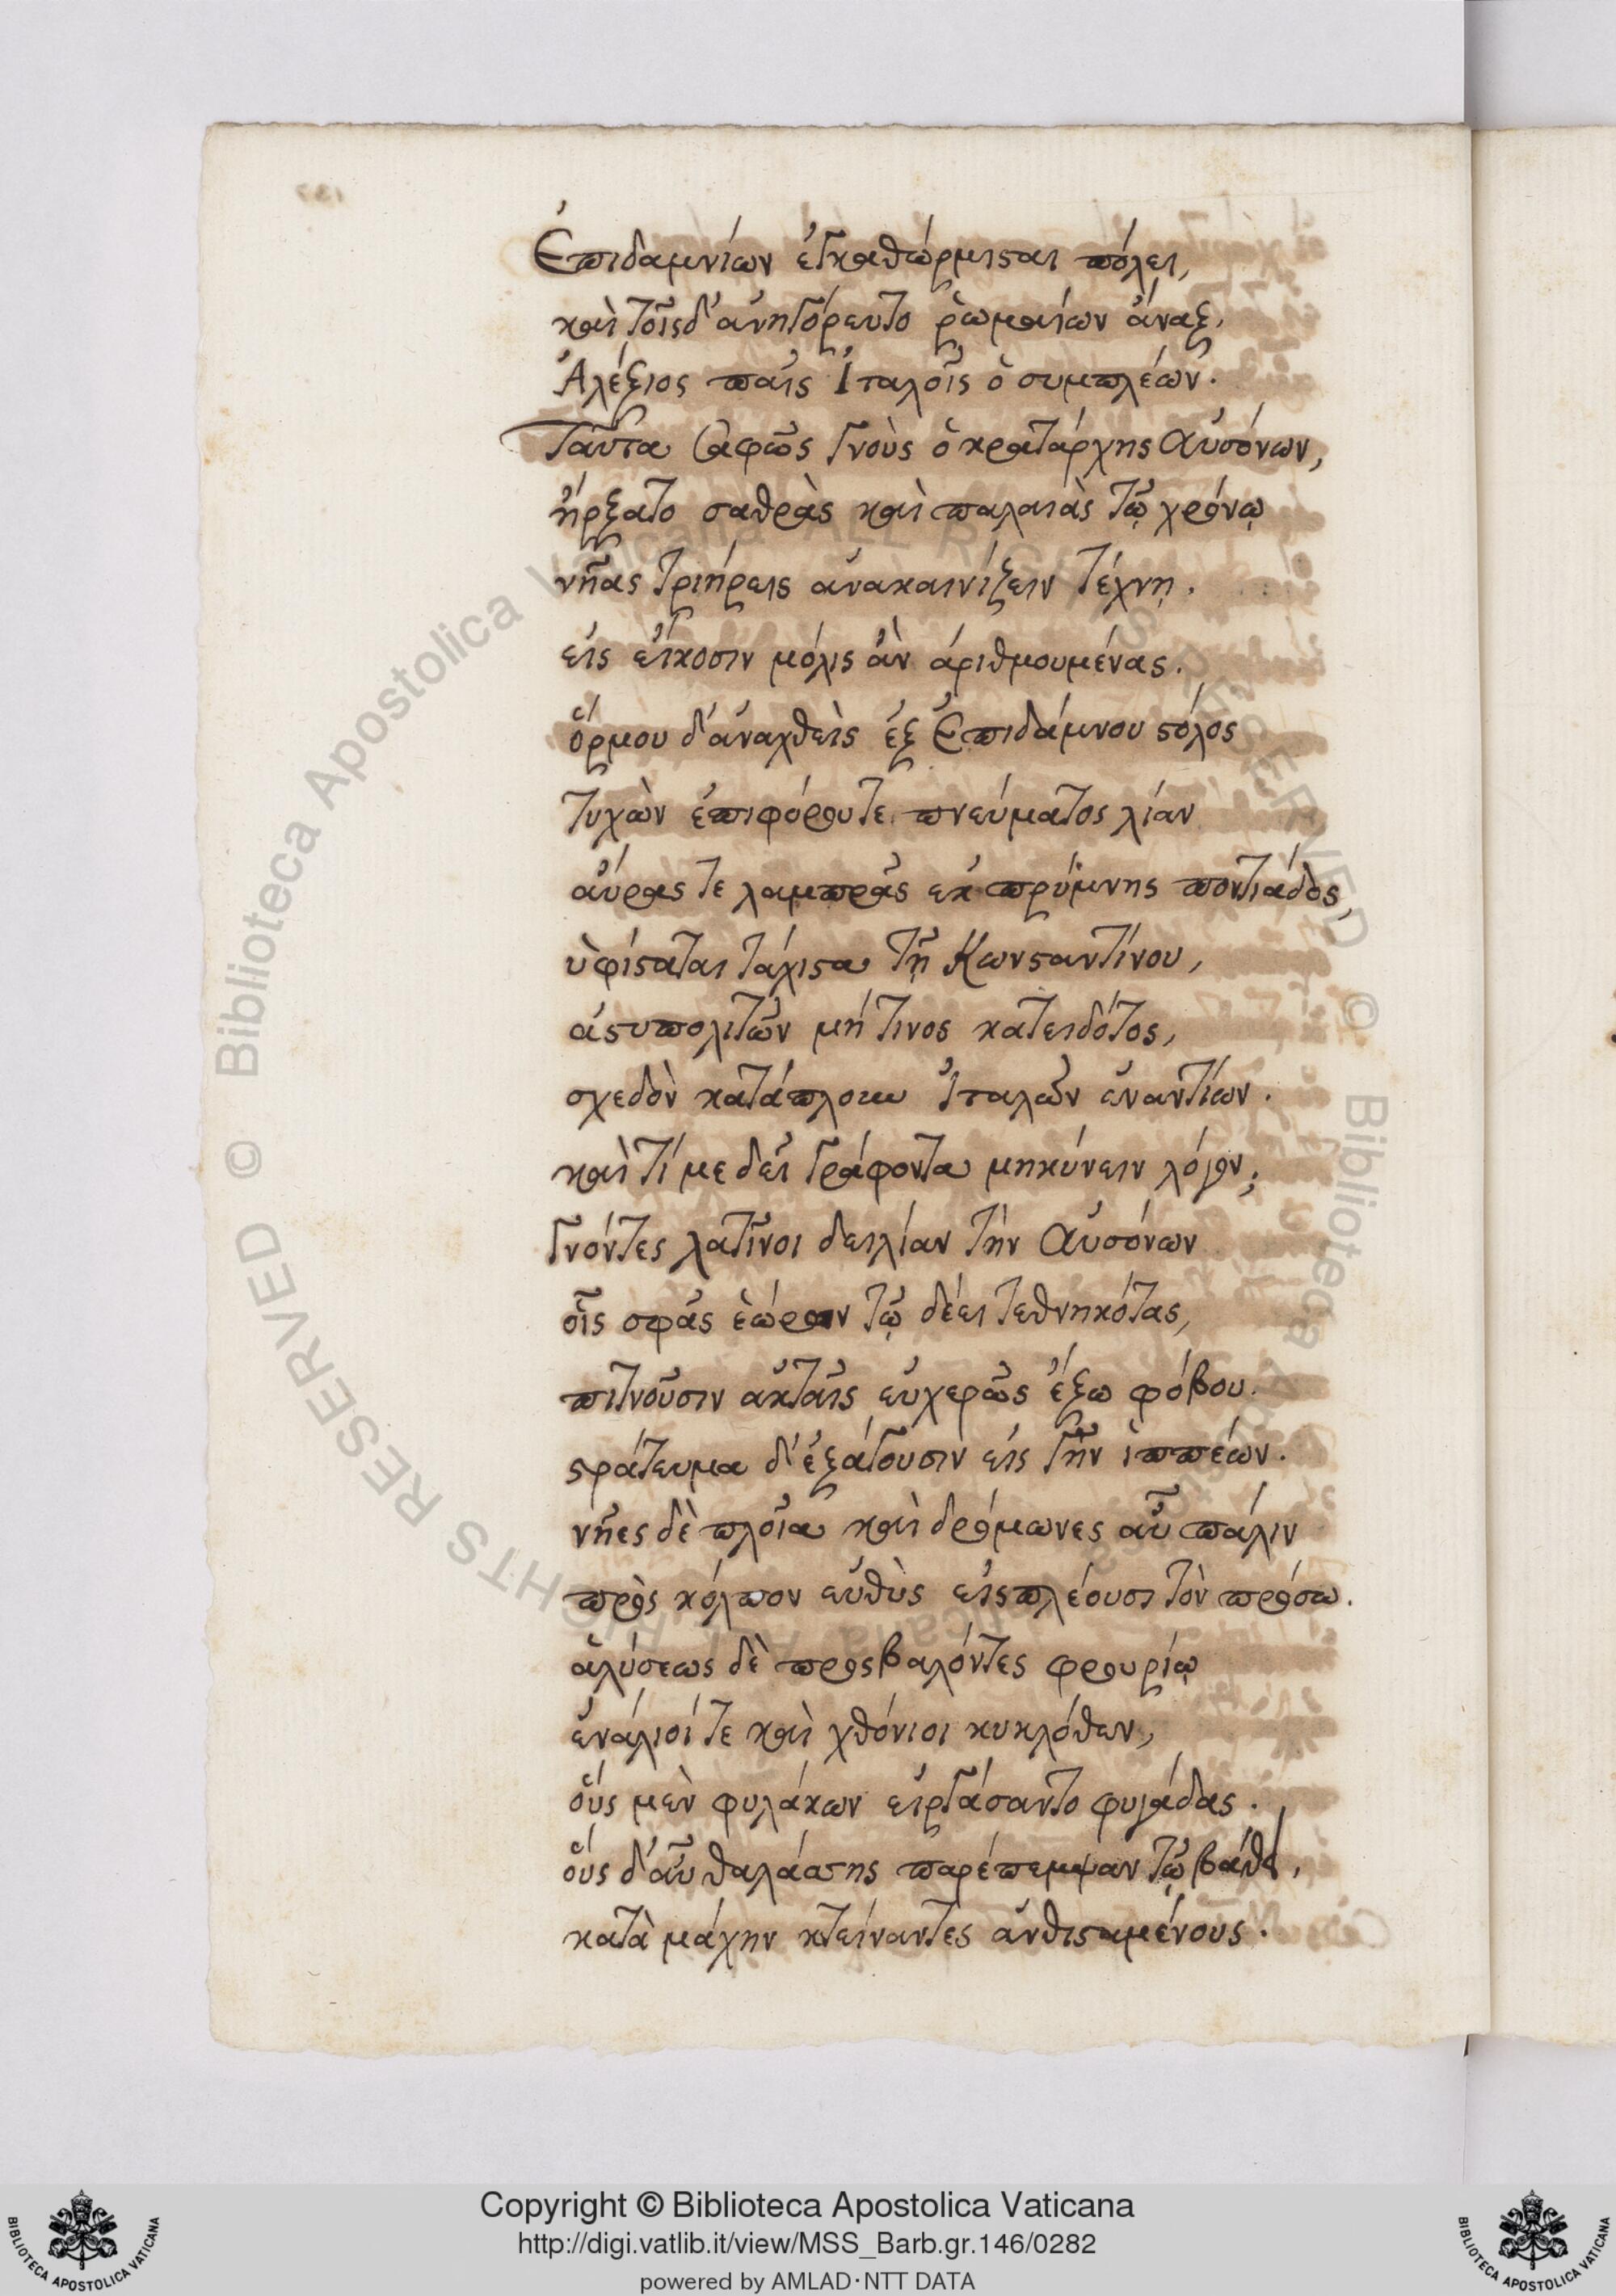 Ἐπιδαμνίων ἐγκαθώρμισται πόλει,
καὶ τοῖςδ' ἀνηγόρευτο ῥωμαίων ἄναξ,
Ἀλέξιος παῖς Ἰταλοῖς ὁ συμπλέων.
Ταῦτα σαφῶς γνοὺς ὁ κρατάρχης Αὐσόνων,
ἤρξατο σαθρὰς καὶ παλαιὰς τῷ χρόνῳ
νῆας τριήρεις ἀνακαινίζειν τέχνῃ.
εἰς εἴκοσιν μόλις ἂν ἀριθμουμένας.
ὅρμου δ' ἀναχθεὶς ἐξ Ἐπιδάμνου στόλος
τυχὼν ἐπιφόρουτε πνεύματος λίαν
αὔρας τε λαμπρᾶς ἐκ πρύμνης ποντιάδος,
ὑφίσταται τάχιστα τῇ Κωνσταντίνου,
ἀστυπολιτῶν μή τινος κατειδότος,
σχεδὸν κατάπλουν Ἰταλῶν ἐναντίων.
καὶ τί με δεῖ γράφοντα μηκύνειν λόγον;
Γνόντες λατῖνοι δειλίαν τὴν Αὐσόνων
οἷς σφᾶς ἑώρων τῷ δέει τεθνηκότας,
πιτνοῦσιν ἀκταῖς εὐχερῶς ἔξω φόβου.
στράτευμα δ' ἐξάγουσιν εἰς γῆν ἱππέων.
νῆες δὲ πλοῖα καὶ δρόμωνες αὖ πάλιν
πρὸς κόλπον εὐθὺς εἰςπλέουσι τὸν πρόσω.
ἁλύσεως δὲ προςβαλόντες φρουρίῳ
ἐνάλιοί τε καὶ χθόνιοι κυκλόθεν,
οὓς μὲν φυλάκων εἰργάσαντο φυγάδας.
οὓς δ' αὖ θαλάσσης παρέπεμψαν τῷ βάθει,
κατὰ μάχην κτείναντες ἀνθισταμένους.
© Biblioteca Apostolica Vaticana ALL RIGHTS RESERVED
© Biblioteca Apostolica Vaticana ALL RIGHTS RESERVED
Copyright © Biblioteca Apostolica Vaticana
http://digi.vatlib.it/view/MSS_Barb.gr.146/0282
powered by AMLAD·NTT DATA
BIBLIOTECA APOSTOLICA VATICANA
BIBLIOTECA APOSTOLICA VATICANA